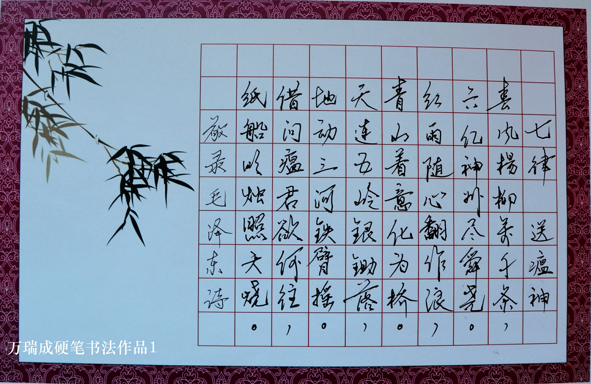 七律 送瘟神
春风揚柳万千条，
六亿神州尽舜尧。
红雨随心翻作浪，
青山着意化为桥，
天连五岭银锄落，
地动三河铁臂摇。
借问瘟君欲何往，
纸船明烛照天烧。
敬录毛泽东诗
万瑞成硬笔书法作品1